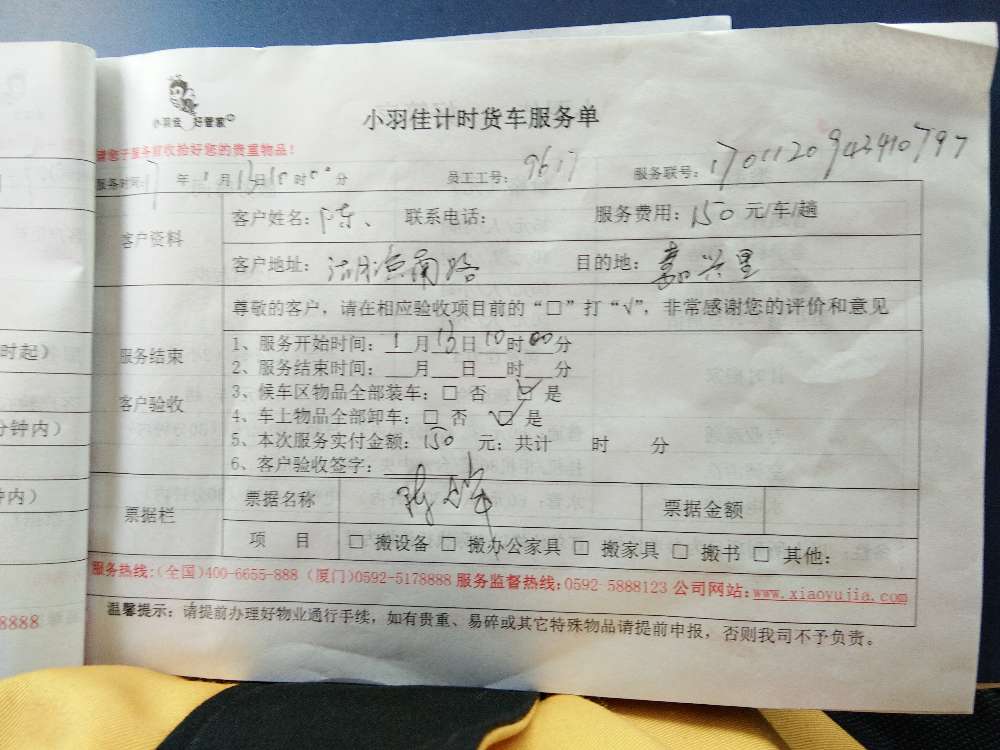 小羽佳 好管家
小羽佳计时货车服务单
请您于服务前收拾好您的贵重物品!
服务时间:17年1月13日10时00分 员工工号:9617 服务联号:1701120942410797
客户资料
客户姓名:陈、 联系电话: 服务费用:150元/车/趟
客户地址:湖滨南路 目的地:嘉兴里
尊敬的客户，请在相应验收项目前的“□”打“√”，非常感谢您的评价和意见
服务结束
客户验收
1、服务开始时间:1月13日10时00分
2、服务结束时间:___月___日___时___分
3、候车区物品全部装车:□ 否 ☑ 是
4、车上物品全部卸车:□ 否 ☑ 是
5、本次服务实付金额:150 元;共计 时 分
6、客户验收签字:
票据栏
票据名称 票据金额
项 目 □ 搬设备 □ 搬办公家具 □ 搬家具 □ 搬书 □ 其他:
服务热线:(全国)400-6655-888 (厦门)0592-5178888 服务监督热线:0592-5888123 公司网站:www.xiaoyujia.com
温馨提示:请提前办理好物业通行手续，如有贵重、易碎或其它特殊物品请提前申报，否则我司不予负责。
时起)
分钟内)
钟内)
8888